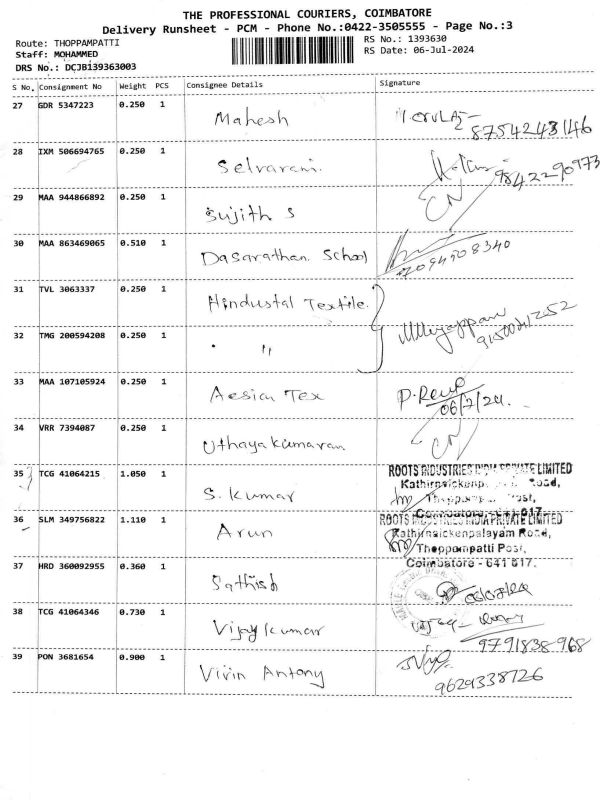 THE PROFESSIONAL COURIERS, COIMBATORE
Delivery Runsheet - PCM - Phone No.:0422-3505555 - Page No.:3
Route: THOPPAMPATTI
RS No.: 1393630
Staff: MOHAMMED
RS Date: 06-Jul-2024
DRS No.: DCJB139363003
S No. Consignment No Weight PCS Consignee Details Signature
27 GDR 5347223 0.250 1 Mahesh 8754243146
28 IXM 506694765 0.250 1 Selvarani. 9842290973
29 MAA 944866892 0.250 1 Sujith S CN
30 MAA 863469065 0.510 1 Dasarathan School 7094508340
31 TVL 3063337 0.250 1 Hindustal Textile.
32 TMG 200594208 0.250 1 " Muyappan
33 MAA 107105924 0.250 1 Aesian Tex P.Renu
06/7/24.
34 VRR 7394087 0.250 1 Uthayakumaran CN
35 TCG 41064215 1.050 1 S. Kumar
ROOTS INDUSTRIES INDIA PRIVATE LIMITED
Kathirnaickenp Road,
Thoppamp Post,
Coimbatore - 641 017.
36 SLM 349756822 1.110 1 Arun
ROOTS INDUSTRIES INDIA PRIVATE LIMITED
Kathirnaickenpalayam Road,
Thoppampatti Post,
Coimbatore - 641 017.
37 HRD 360092955 0.360 1 Sathish
38 TCG 41064346 0.730 1 Vijaykumar
9791838968
39 PON 3681654 0.900 1 Vivin Antony
9629338726